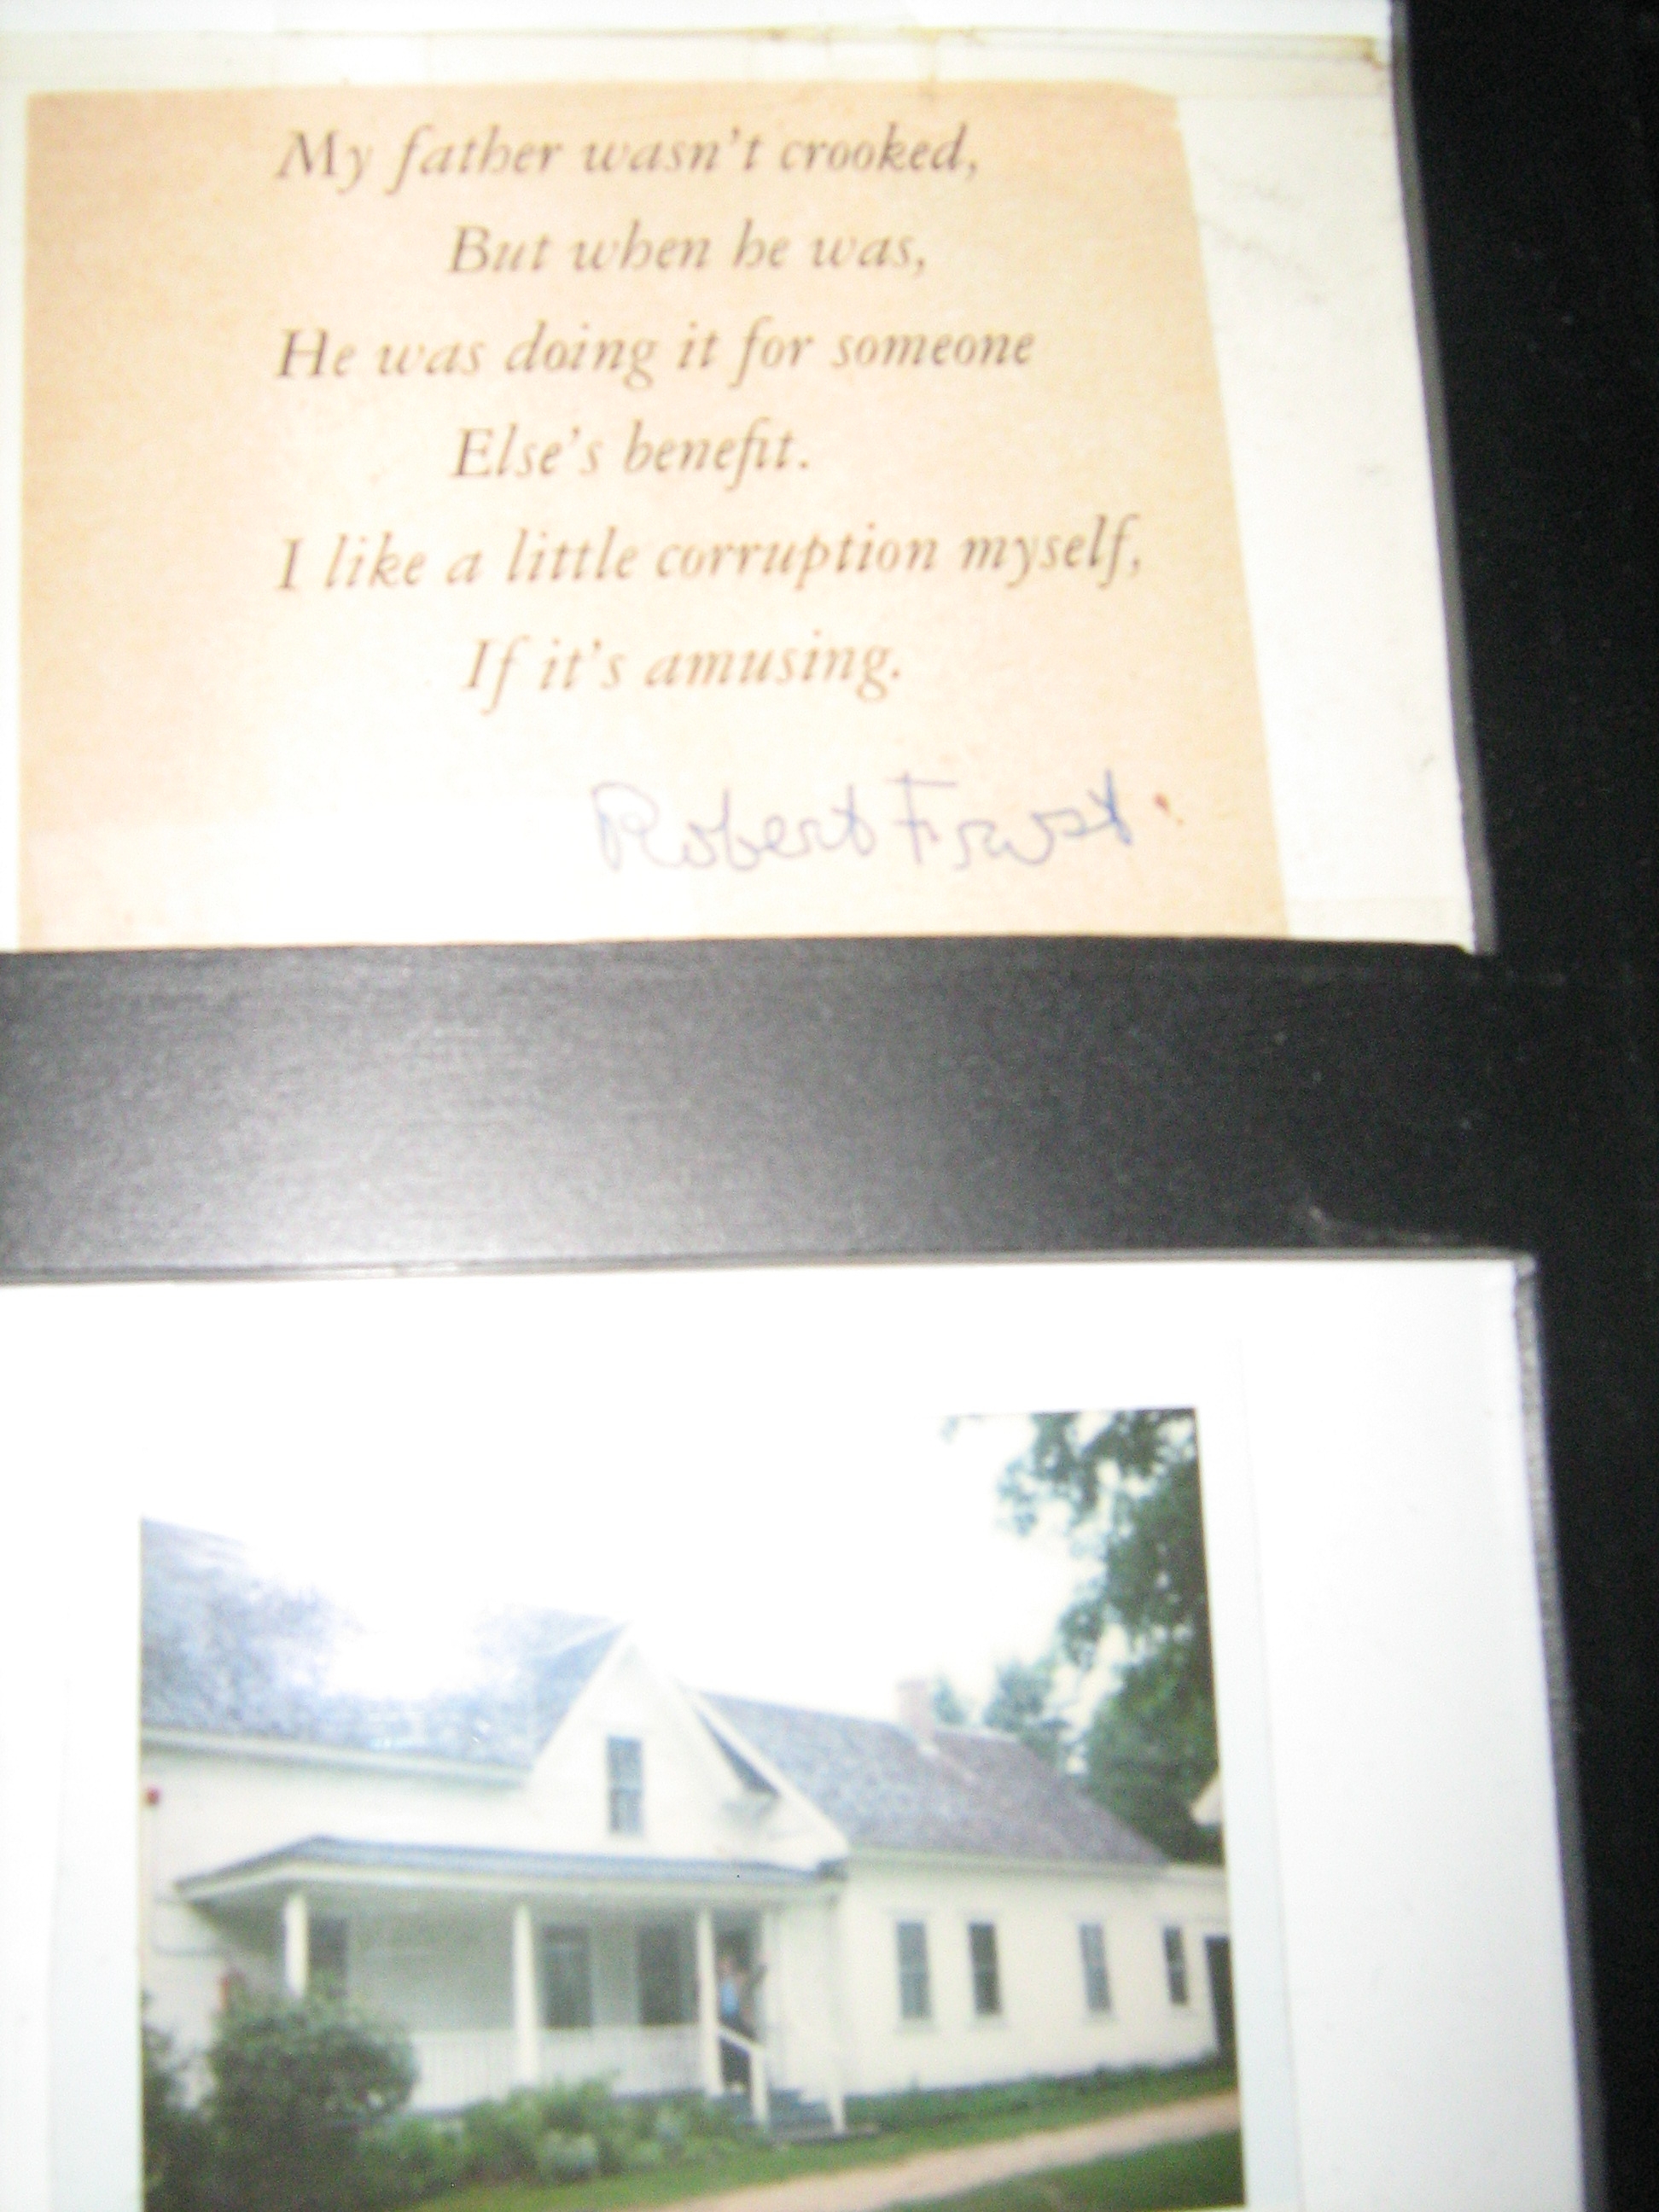 My father wasn't crooked,
But when he was,
He was doing it for someone
Else's benefit.
I like a little corruption myself,
If it's amusing.
Robert Frost